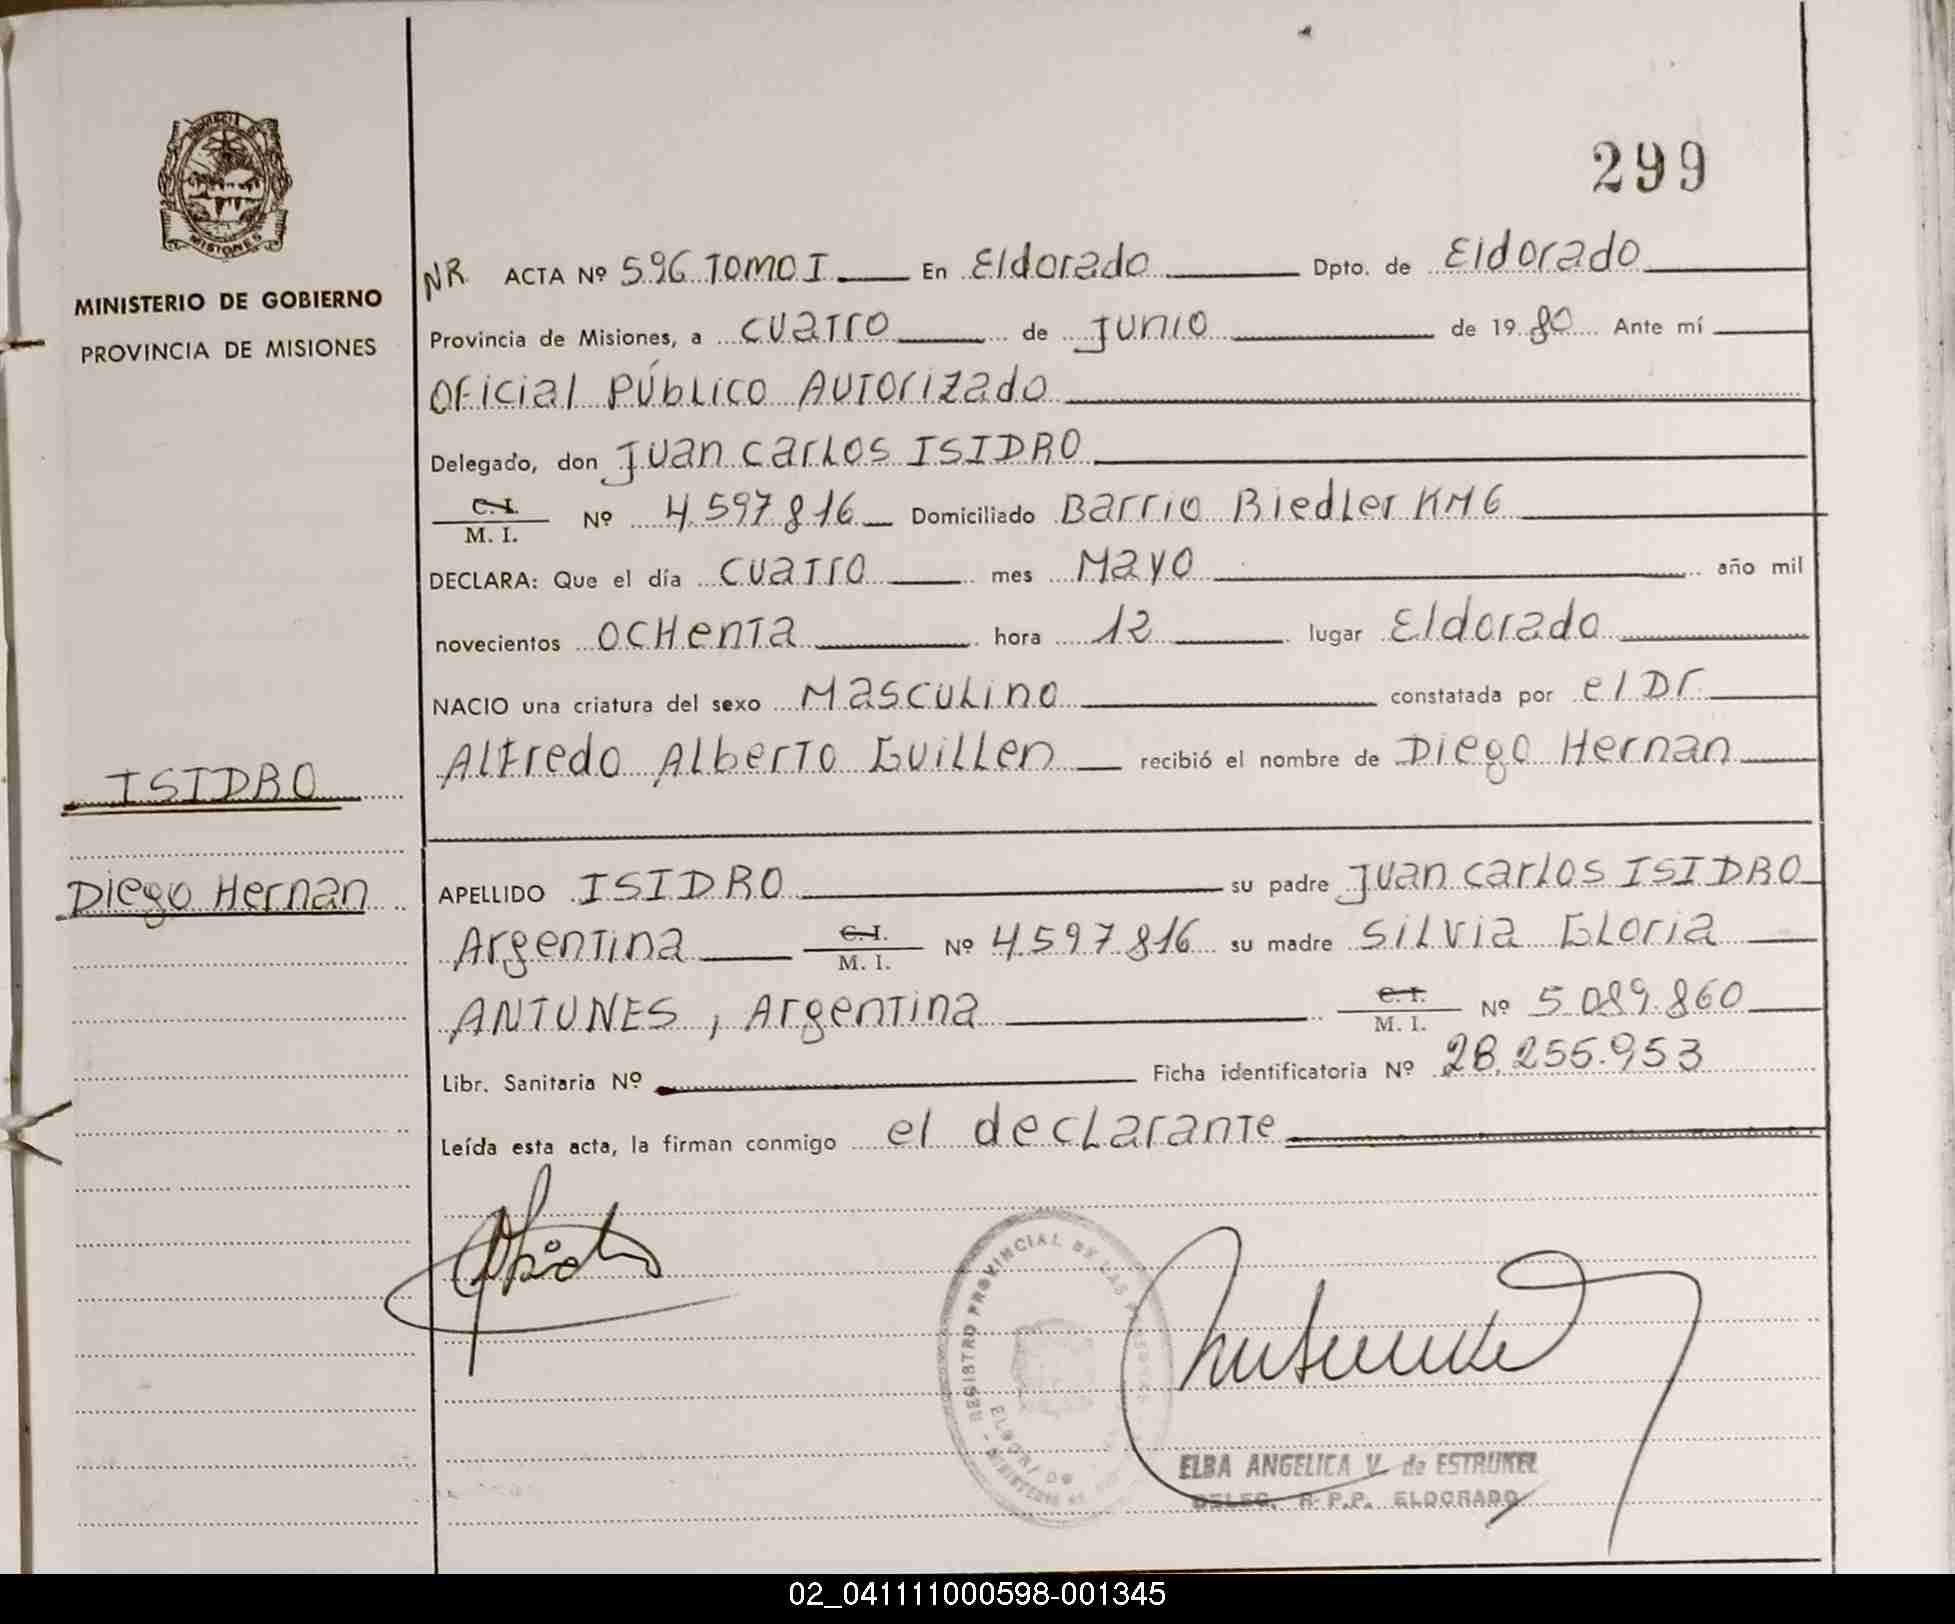 299
PROVINCIA DE
MISIONES
MINISTERIO DE GOBIERNO
PROVINCIA DE MISIONES
ISIDRO
Diego Hernan
NR ACTA Nº 596 TOMO I En Eldorado Dpto. de Eldorado
Provincia de Misiones, a cuatro de junio de 1980 Ante mí
Oficial Público Autorizado
Delegado, don Juan Carlos ISIDRO
C. I.
M. I. Nº 4.597.816 Domiciliado Barrio Riedler KM 6
DECLARA: Que el día cuatro mes Mayo año mil
novecientos ochenta hora 12 lugar Eldorado
NACIO una criatura del sexo Masculino constatada por el Dr.
Alfredo Alberto Guillen recibió el nombre de Diego Hernan
APELLIDO ISIDRO su padre Juan Carlos ISIDRO
Argentina C. I. M. I. Nº 4.597.816 su madre Silvia Gloria
ANTUNES, Argentina C. I. M. I. Nº 5.089.860
Libr. Sanitaria Nº Ficha identificatoria Nº 28.255.953
Leída esta acta, la firman conmigo el declarante
REGISTRO PROVINCIAL DE LAS
ELBA ANGELICA V. de ESTRUKEL
DELEG. R.P.P. ELDORADO
02_041111000598-001345